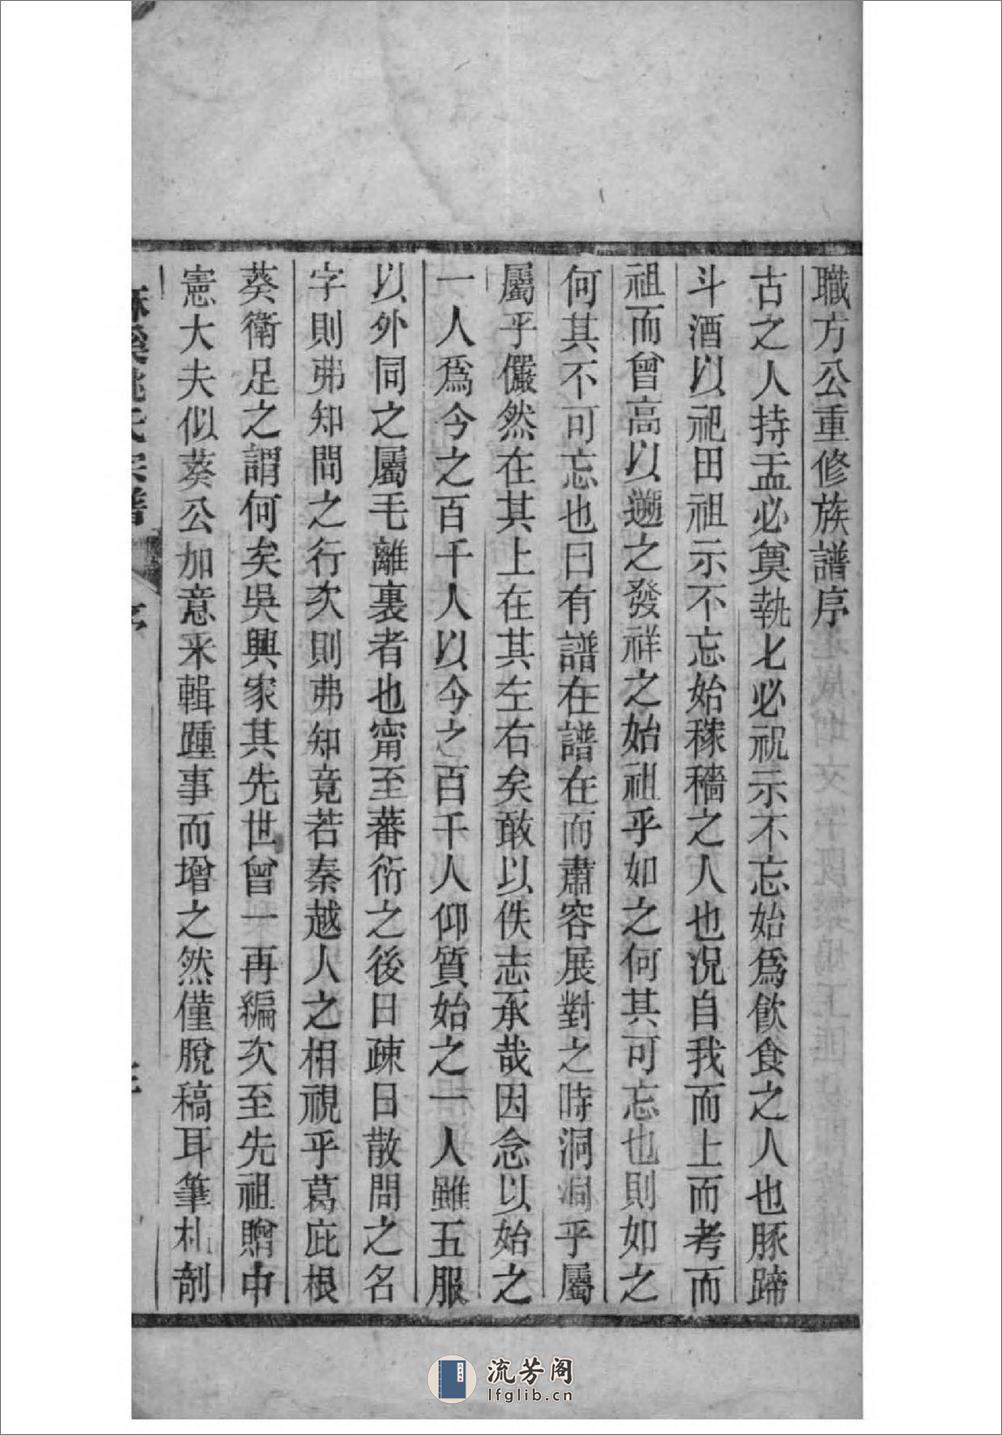 職方公重修族譜序
古之人持盂必奠執匕必祝示不忘始爲飮食之人也豚蹄
斗酒以祀田祖示不忘始稼穡之人也況自我而上而考而
祖而曾高以遡之發祥之始祖乎如之何其可忘也則如之
何其不可忘也曰有譜在譜在而肅容展對之時洞洞乎屬
屬乎儼然在其上在其左右矣敢以佚志承哉因念以始之
一人爲今之百千人以今之百千人仰質始之一人雖五服
以外同之屬毛離裏者也甯至蕃衍之後日疎日散問之名
字則弗知問之行次則弗知竟若秦越人之相視乎葛庇根
葵衛足之謂何矣吳興家其先世曾一再編次至先祖贈中
憲大夫似葵公加意采輯踵事而增之然僅脫稿耳筆札剞
姚氏宗譜
序
流芳阁
lfglib.cn